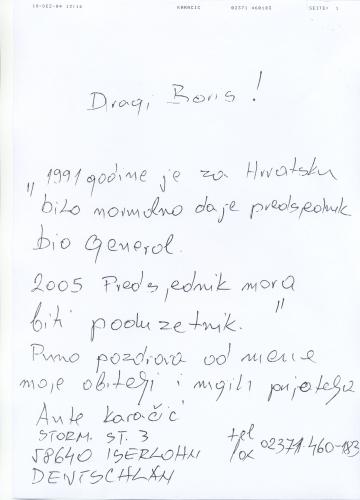 10-DEZ-04 12:16 KARACIC 02371 460183 SEITE: 1
Dragi Boris!
"1991 godine je za Hrvatsku
bilo normalno da je predsjednik
bio General.
2005 Predsjednik mora
biti poduzetnik."
Puno pozdrava od mene
moje obitelji i mojih prijatelja
Ante Karačić
STORM. ST. 3
58640 ISERLOHN
DEUTSCHLAN
tel
fax 02371-460-183